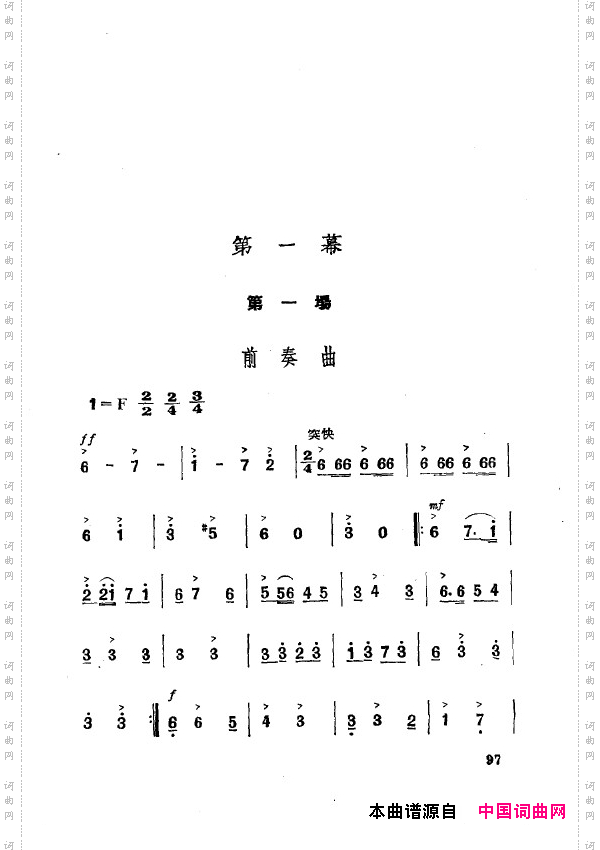 第一幕
第一場
前奏曲
1=F 2/2 2/4 3/4
ff 突快
6 - 7 - | i - 7 2 | 2/4 6 66 6 66 | 6 66 6 66 |
mf
6 i | 3 #5 | 6 0 | 3 0 |: 6 7. i |
2 2i 7 i | 6 7 6 | 5 56 4 5 | 3 4 3 | 6. 6 5 4 |
3 3 3 | 3 3 | 3 3 2 3 | i 3 7 3 | 6 3 3 |
f
3 3 :| 6 6 5 | 4 3 | 3 3 2 | 1 7 |
97
本曲谱源自 中国词曲网
词曲网